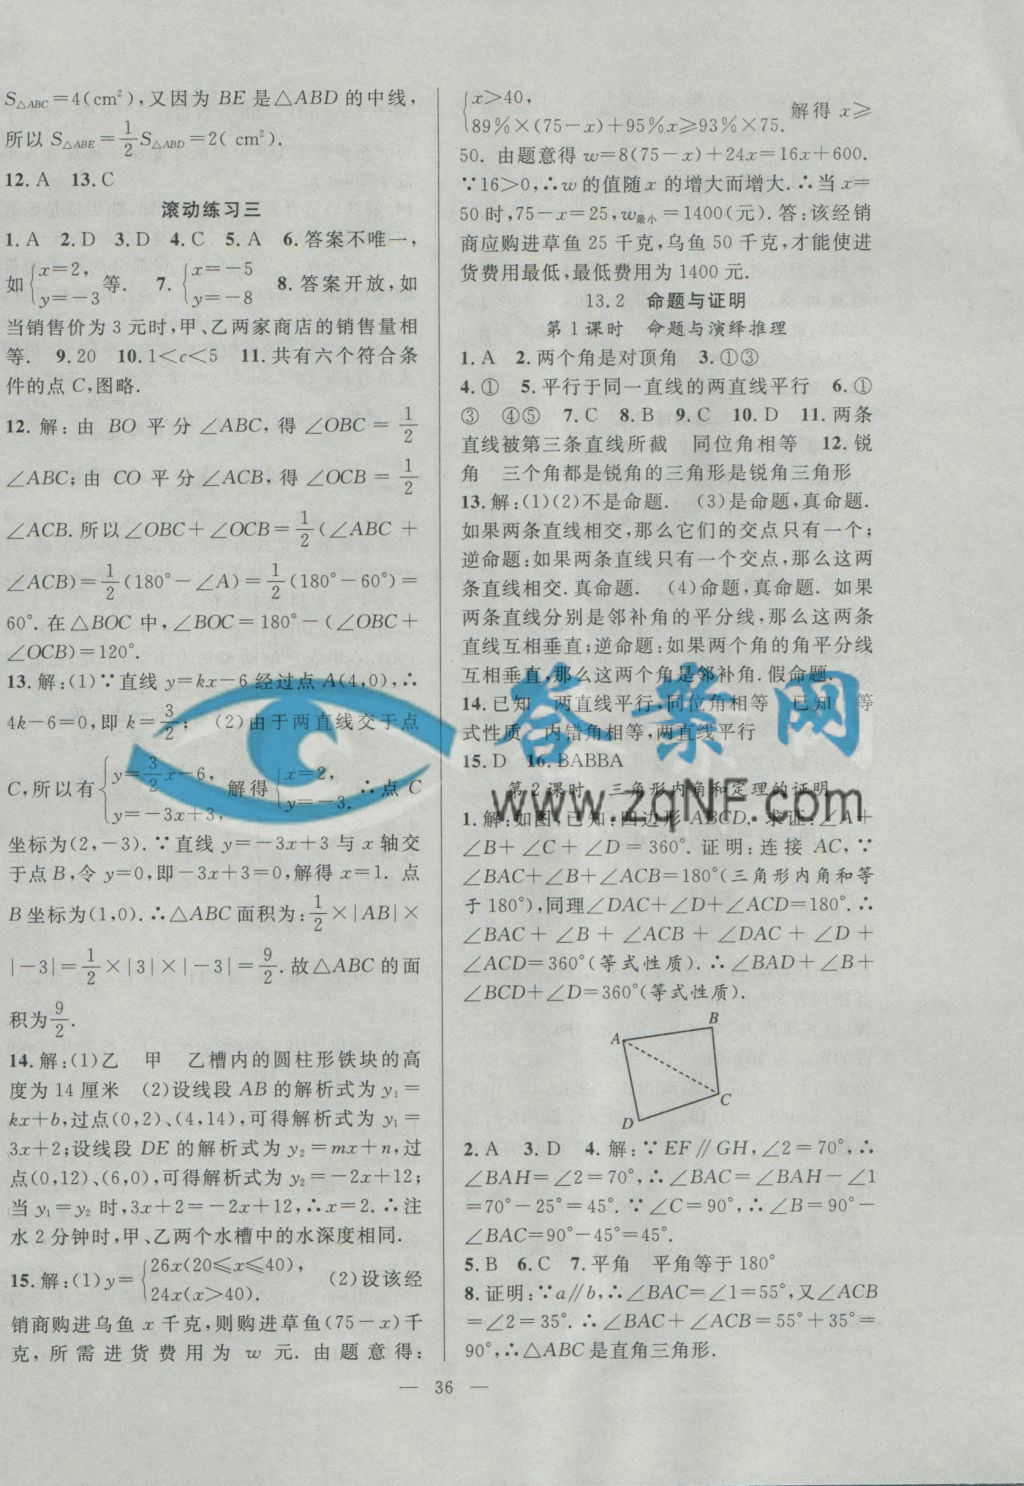 S△ABC=4(cm²),又因为 BE 是△ABD 的中线,
所以 S△ABE=1/2 S△ABD=2( cm²).
12. A　13. C
滚动练习三
1. A　2. D　3. D　4. C　5. A　6. 答案不唯一,
如{x=2, y=-3 等.　7. {x=-5 y=-8　8. 答案开放,如
当销售价为 3 元时,甲、乙两家商店的销售量相
等.　9. 20　10. 1<c<5　11. 共有六个符合条
件的点 C,图略.
12. 解:由 BO 平分∠ABC,得∠OBC=1/2
∠ABC;由 CO 平分∠ACB,得∠OCB=1/2
∠ACB. 所以∠OBC+∠OCB=1/2(∠ABC+
∠ACB)=1/2(180°-∠A)=1/2(180°-60°)=
60°. 在△BOC 中,∠BOC=180°-(∠OBC+
∠OCB)=120°.
13. 解:(1)∵直线 y=kx-6 经过点 A(4,0),∴
4k-6=0,即 k=3/2;　(2)由于两直线交于点
C,所以有{y=3/2x-6, y=-3x+3, 解得{x=2, y=-3. ∴点 C
坐标为(2,-3). ∵直线 y=-3x+3 与 x 轴交
于点 B,令 y=0,即-3x+3=0,解得 x=1. 点
B 坐标为(1,0). ∴△ABC 面积为:1/2×|AB|×
|-3|=1/2×|3|×|-3|=9/2. 故△ABC 的面
积为9/2.
14. 解:(1)乙　甲　乙槽内的圆柱形铁块的高
度为 14 厘米　(2)设线段 AB 的解析式为 y₁=
kx+b,过点(0,2)、(4,14),可得解析式为 y₁=
3x+2;设线段 DE 的解析式为 y₂=mx+n,过
点(0,12)、(6,0),可得解析式为 y₂=-2x+12;
当 y₁=y₂ 时,3x+2=-2x+12,∴x=2. ∴注
水 2 分钟时,甲、乙两个水槽中的水深度相同.
15. 解:(1)y={26x(20≤x≤40), 24x(x>40).　(2)设该经
销商购进乌鱼 x 千克,则购进草鱼(75-x)千
克,所需进货费用为 w 元. 由题意得:
{x>40, 89%×(75-x)+95%x≥93%×75. 解得 x≥
50. 由题意得 w=8(75-x)+24x=16x+600.
∵16>0,∴w 的值随 x 的增大而增大. ∴当 x=
50 时,75-x=25,w最小=1400(元). 答:该经销
商应购进草鱼 25 千克,乌鱼 50 千克,才能使进
货费用最低,最低费用为 1400 元.
13.2　命题与证明
第 1 课时　命题与演绎推理
1. A　2. 两个角是对顶角　3. ①③
4. ①　5. 平行于同一直线的两直线平行　6. ①
③　④⑤　7. C　8. B　9. C　10. D　11. 两条
直线被第三条直线所截　同位角相等　12. 锐
角　三个角都是锐角的三角形是锐角三角形
13. 解:(1)(2)不是命题.　(3)是命题,真命题.
如果两条直线相交,那么它们的交点只有一个;
逆命题:如果两条直线只有一个交点,那么这两
条直线相交. 真命题.　(4)命题,真命题. 如果
两条直线分别是邻补角的平分线,那么这两条
直线互相垂直;逆命题:如果两个角的角平分线
互相垂直,那么这两个角是邻补角. 假命题.
14. 已知　两直线平行,同位角相等　已知　等
式性质　内错角相等,两直线平行
15. D　16. BABBA
第 2 课时　三角形内角和定理的证明
1. 解:如图,已知:四边形 ABCD. 求证:∠A+
∠B+∠C+∠D=360°. 证明:连接 AC,∵
∠BAC+∠B+∠ACB=180°(三角形内角和等
于 180°),同理∠DAC+∠D+∠ACD=180°. ∴
∠BAC+∠B+∠ACB+∠DAC+∠D+
∠ACD=360°(等式性质). ∴∠BAD+∠B+
∠BCD+∠D=360°(等式性质).
B
A
C
D
2. A　3. D　4. 解:∵EF∥GH,∠2=70°,∴
∠BAH=∠2=70°,∴∠BAC=∠BAH-∠1
=70°-25°=45°. ∵∠C=90°,∴∠B=90°-
∠BAC=90°-45°=45°.
5. B　6. C　7. 平角　平角等于 180°
8. 证明:∵a∥b,∴∠BAC=∠1=55°,又∠ACB
=∠2=35°. ∴∠BAC+∠ACB=55°+35°=
90°,∴△ABC 是直角三角形.
— 36 —
答案网
www.zqNF.com